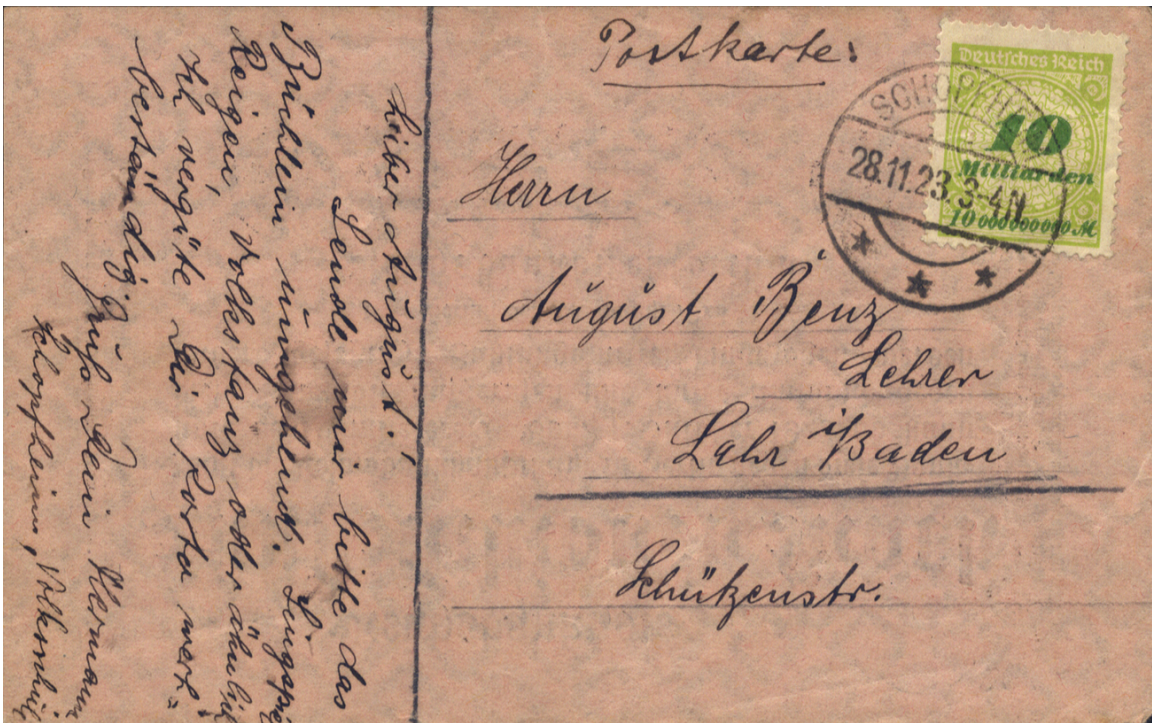 Postkarte:
Deutsches Reich
10
Milliarden
10 000000000 M
SCHOPFH
28.11.23. 3-4N
Herrn
August Benz
Lehrer
Lahr i/Baden
Schützenstr.
Lieber August!
Sende mir bitte das
Büchlein umgehend. Singspiel
Reigen, Volkstanz oder ähnlich
Ich vergüte Dir Porto wert-
beständig.
Gruß Dein Hermann
Schopfheim,